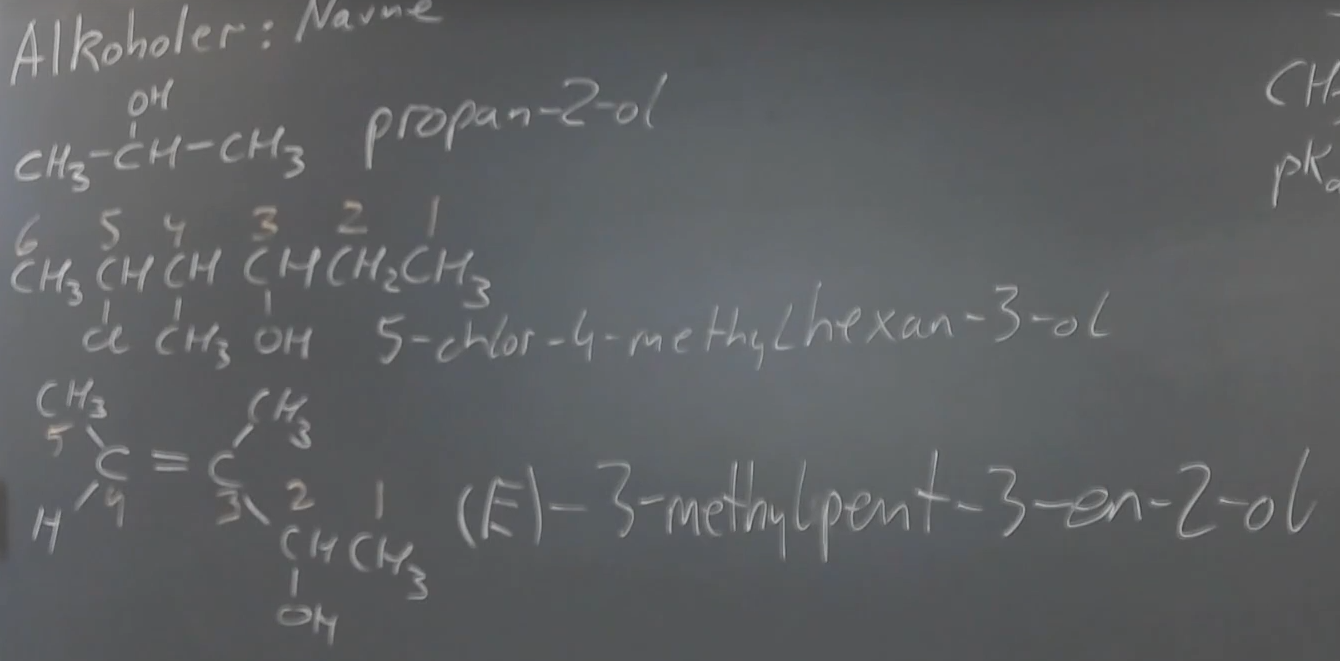 Alkoholer: Navne
OH
CH3-CH-CH3 propan-2-ol
CH3
pKa
6 5 4 3 2 1
CH3 CH CH CH CH2 CH3
Cl CH3 OH 5-chlor-4-methylhexan-3-ol
CH3 CH3
5
C = C
H 4 3 2 1 (E)-3-methylpent-3-en-2-ol
CH CH3
OH